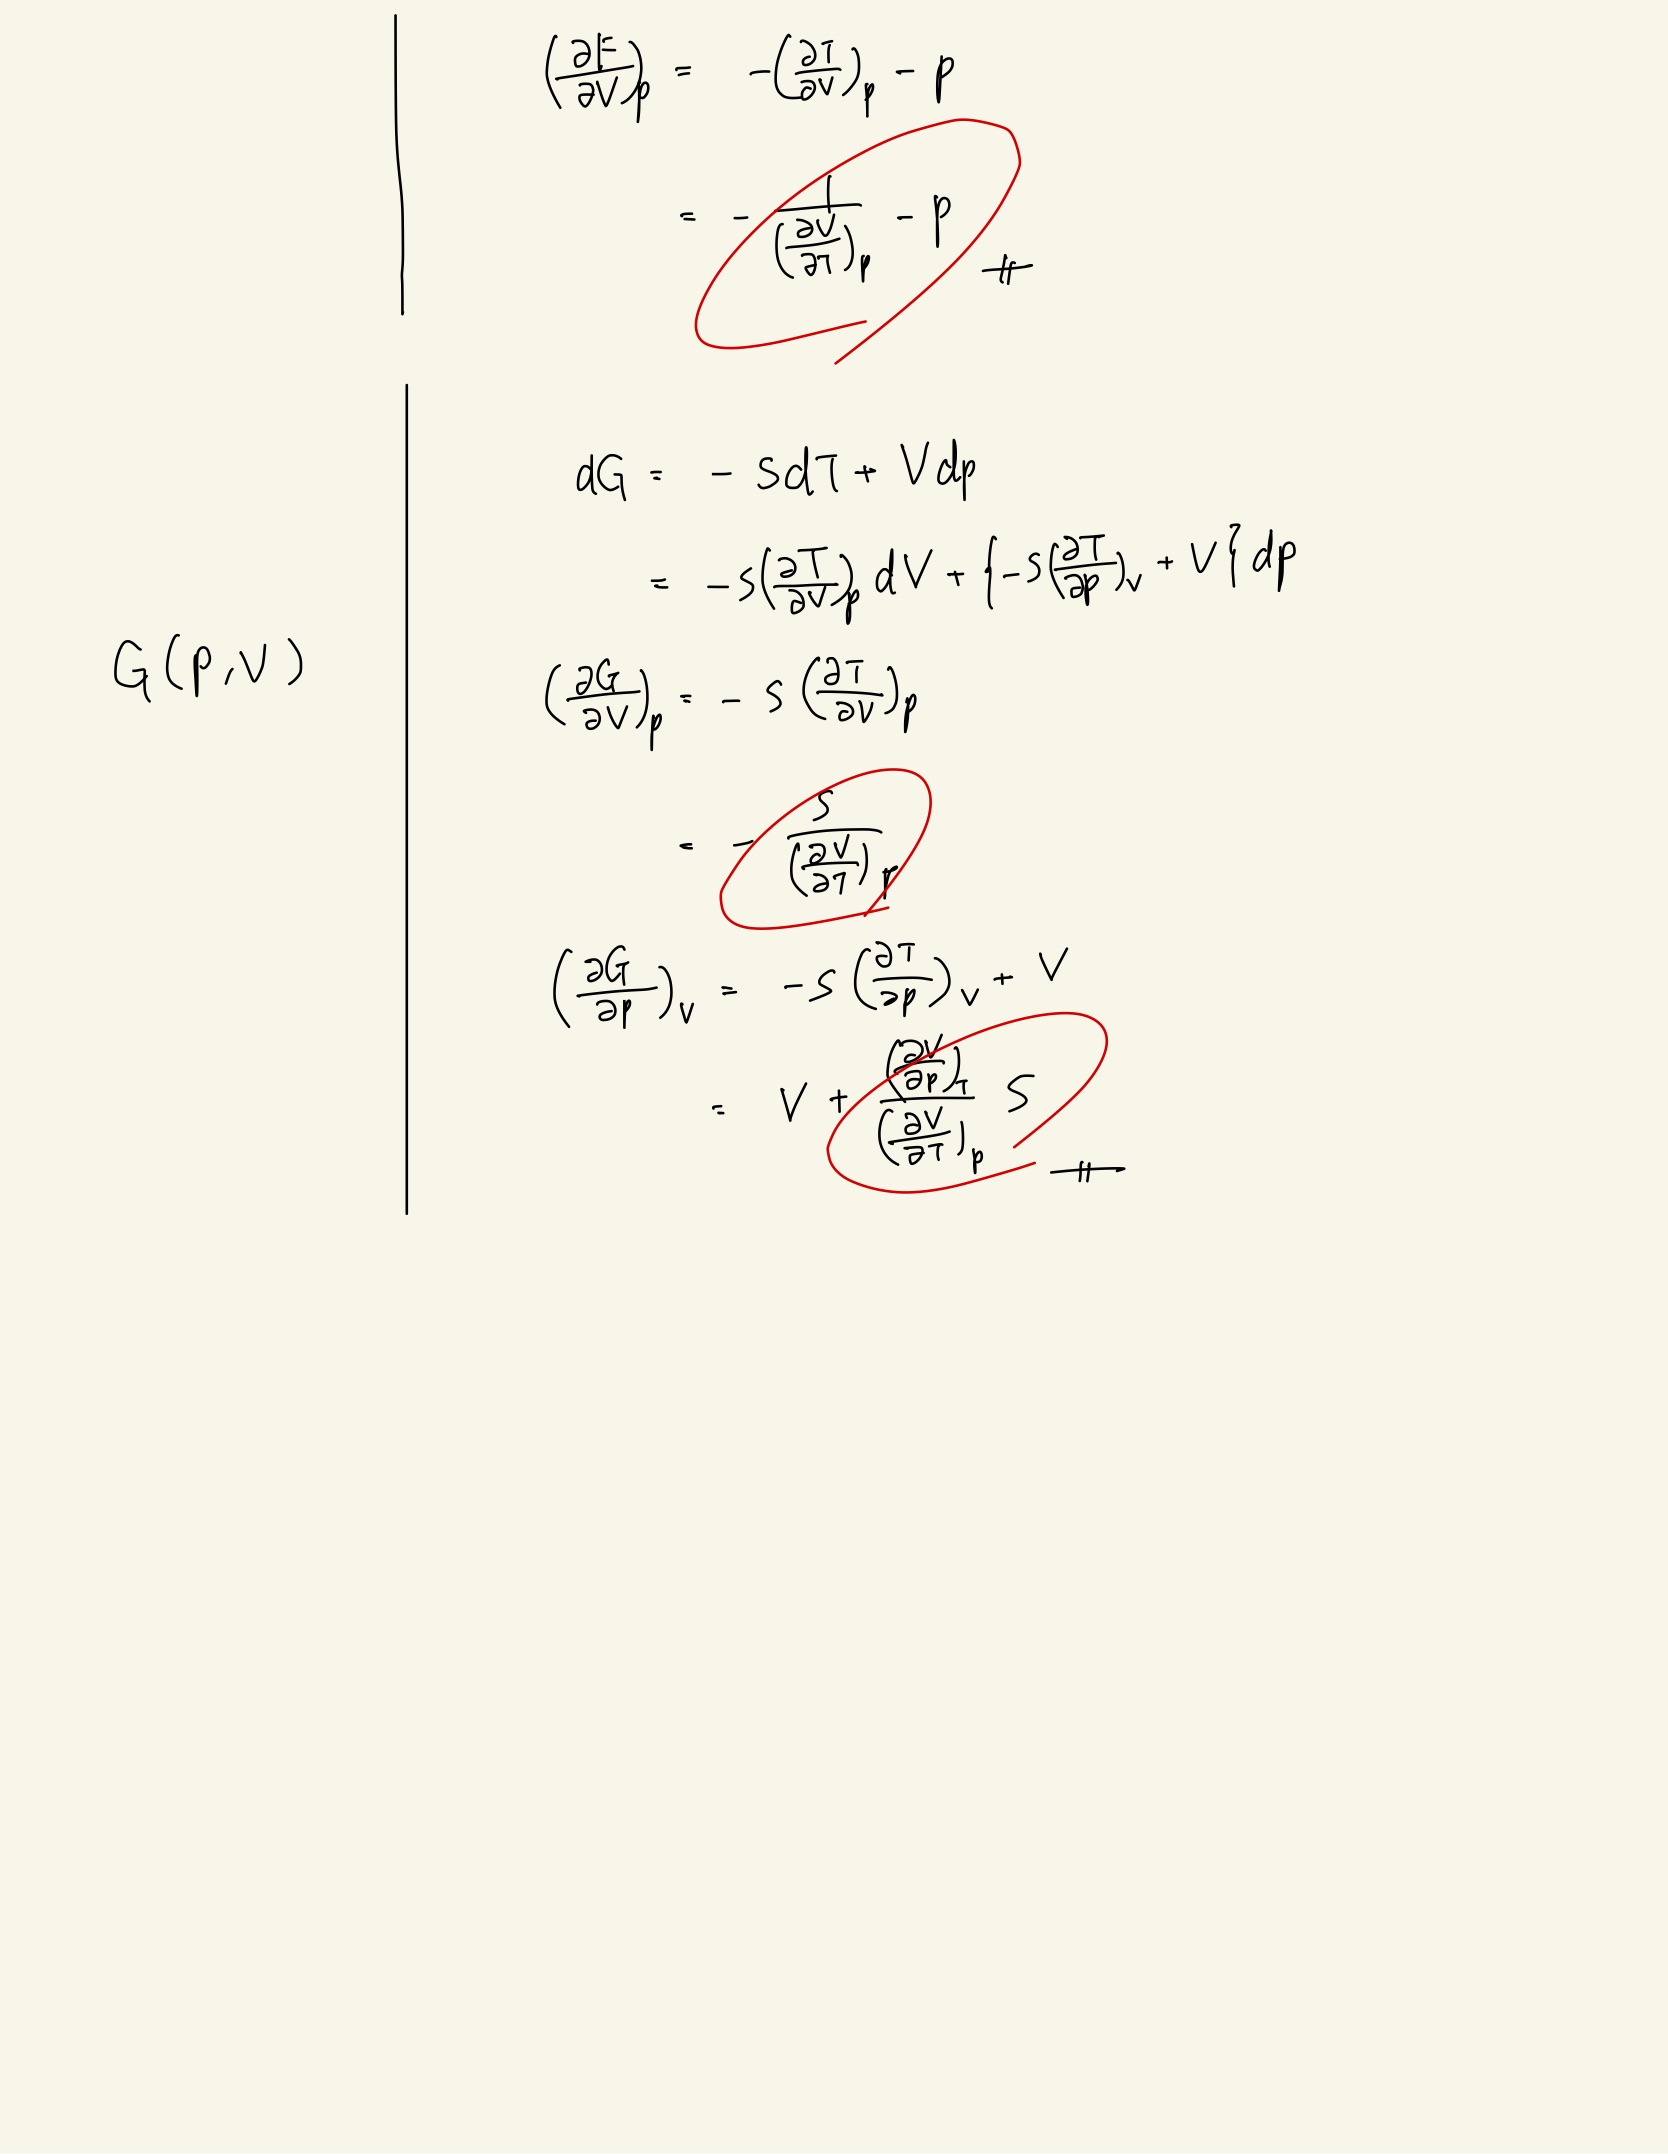 (∂F/∂V)_p = -(∂T/∂V)_p - p
= - 1/(∂V/∂T)_p - p
dG = - SdT + Vdp
= -S(∂T/∂V)_p dV + {-S(∂T/∂p)_V + V} dp
G(p,V)
(∂G/∂V)_p = - S (∂T/∂V)_p
= - S/(∂V/∂T)_p
(∂G/∂p)_V = -S (∂T/∂p)_V + V
= V + (∂V/∂p)_T/(∂V/∂T)_p S